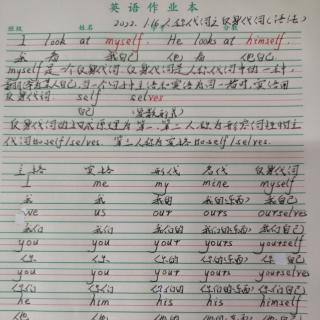 英语作业本
班级 姓名 分数
2022. 1/6 人称代词之反身代词(语法)
I look at myself. He looks at himself.
我 看 我自己 他 看 他自己
myself是一个反身代词.反身代词是人称代词中的一种,
反身代词 self selves
(复数形式)
反身代词的构成原理为第一、第二人称为形容词性物主
代词+self/selves. 第三人称为宾格+self/selves.
主格 宾格 形代 名代 反身代词
I me my mine myself
我 我 我的 我的(东西) 我自己
we us our ours ourselves
我们 我们 我们的 我们的(东西) 我们自己
you you your yours yourself
你 你 你的 你的(东西) 你自己
you you your yours yourselves
你们 你们 你们的 你们的(东西) 你们自己
he him his his himself